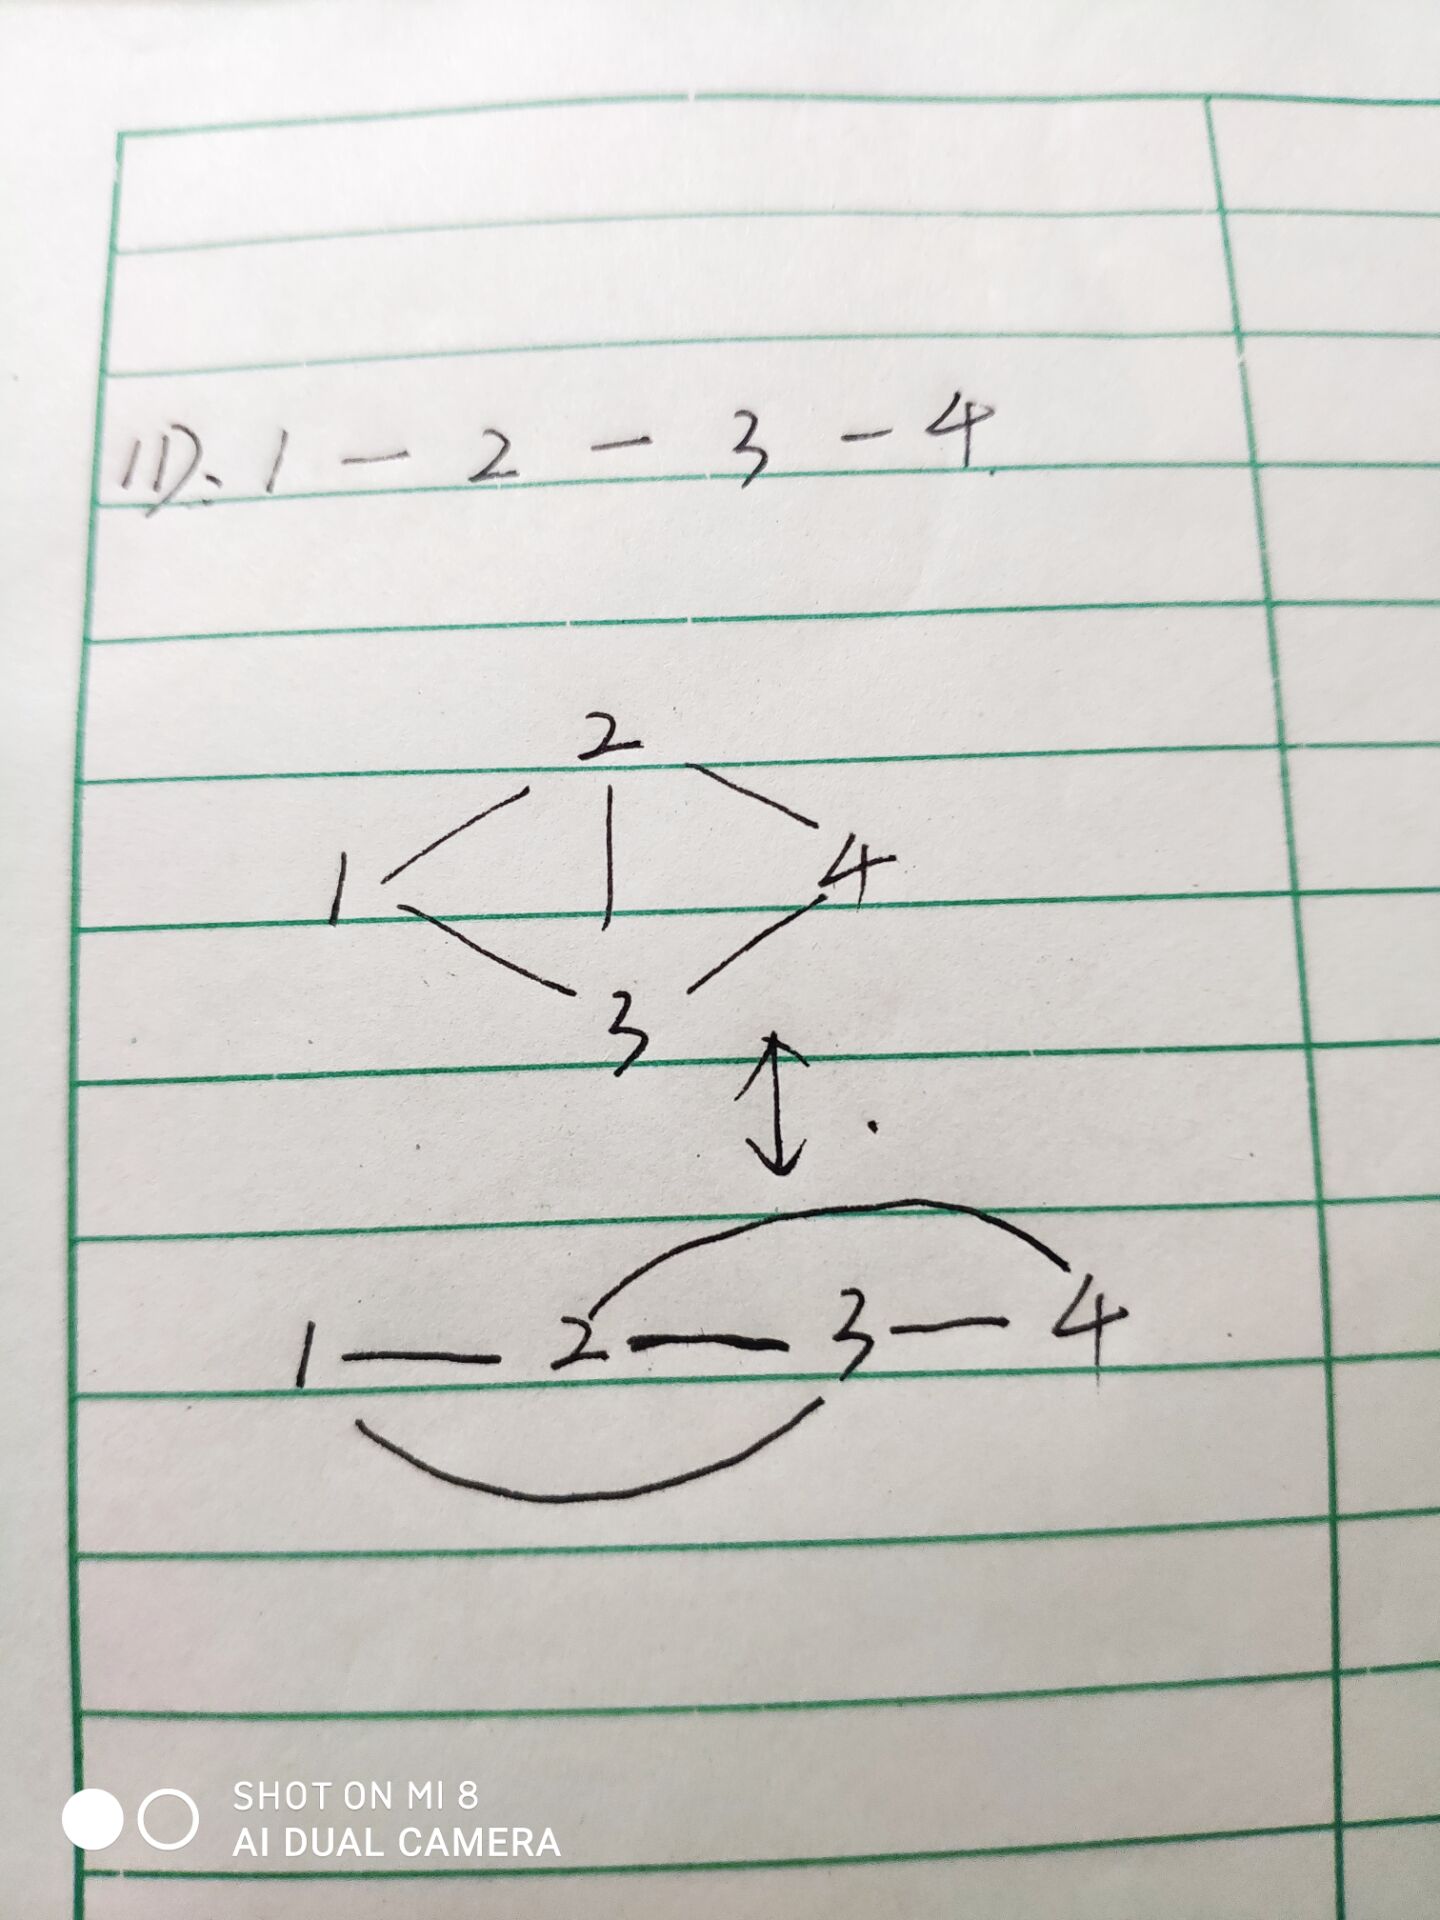 1D: 1 — 2 — 3 — 4
2
1 4
3
1 — 2 — 3 — 4
SHOT ON MI 8
AI DUAL CAMERA